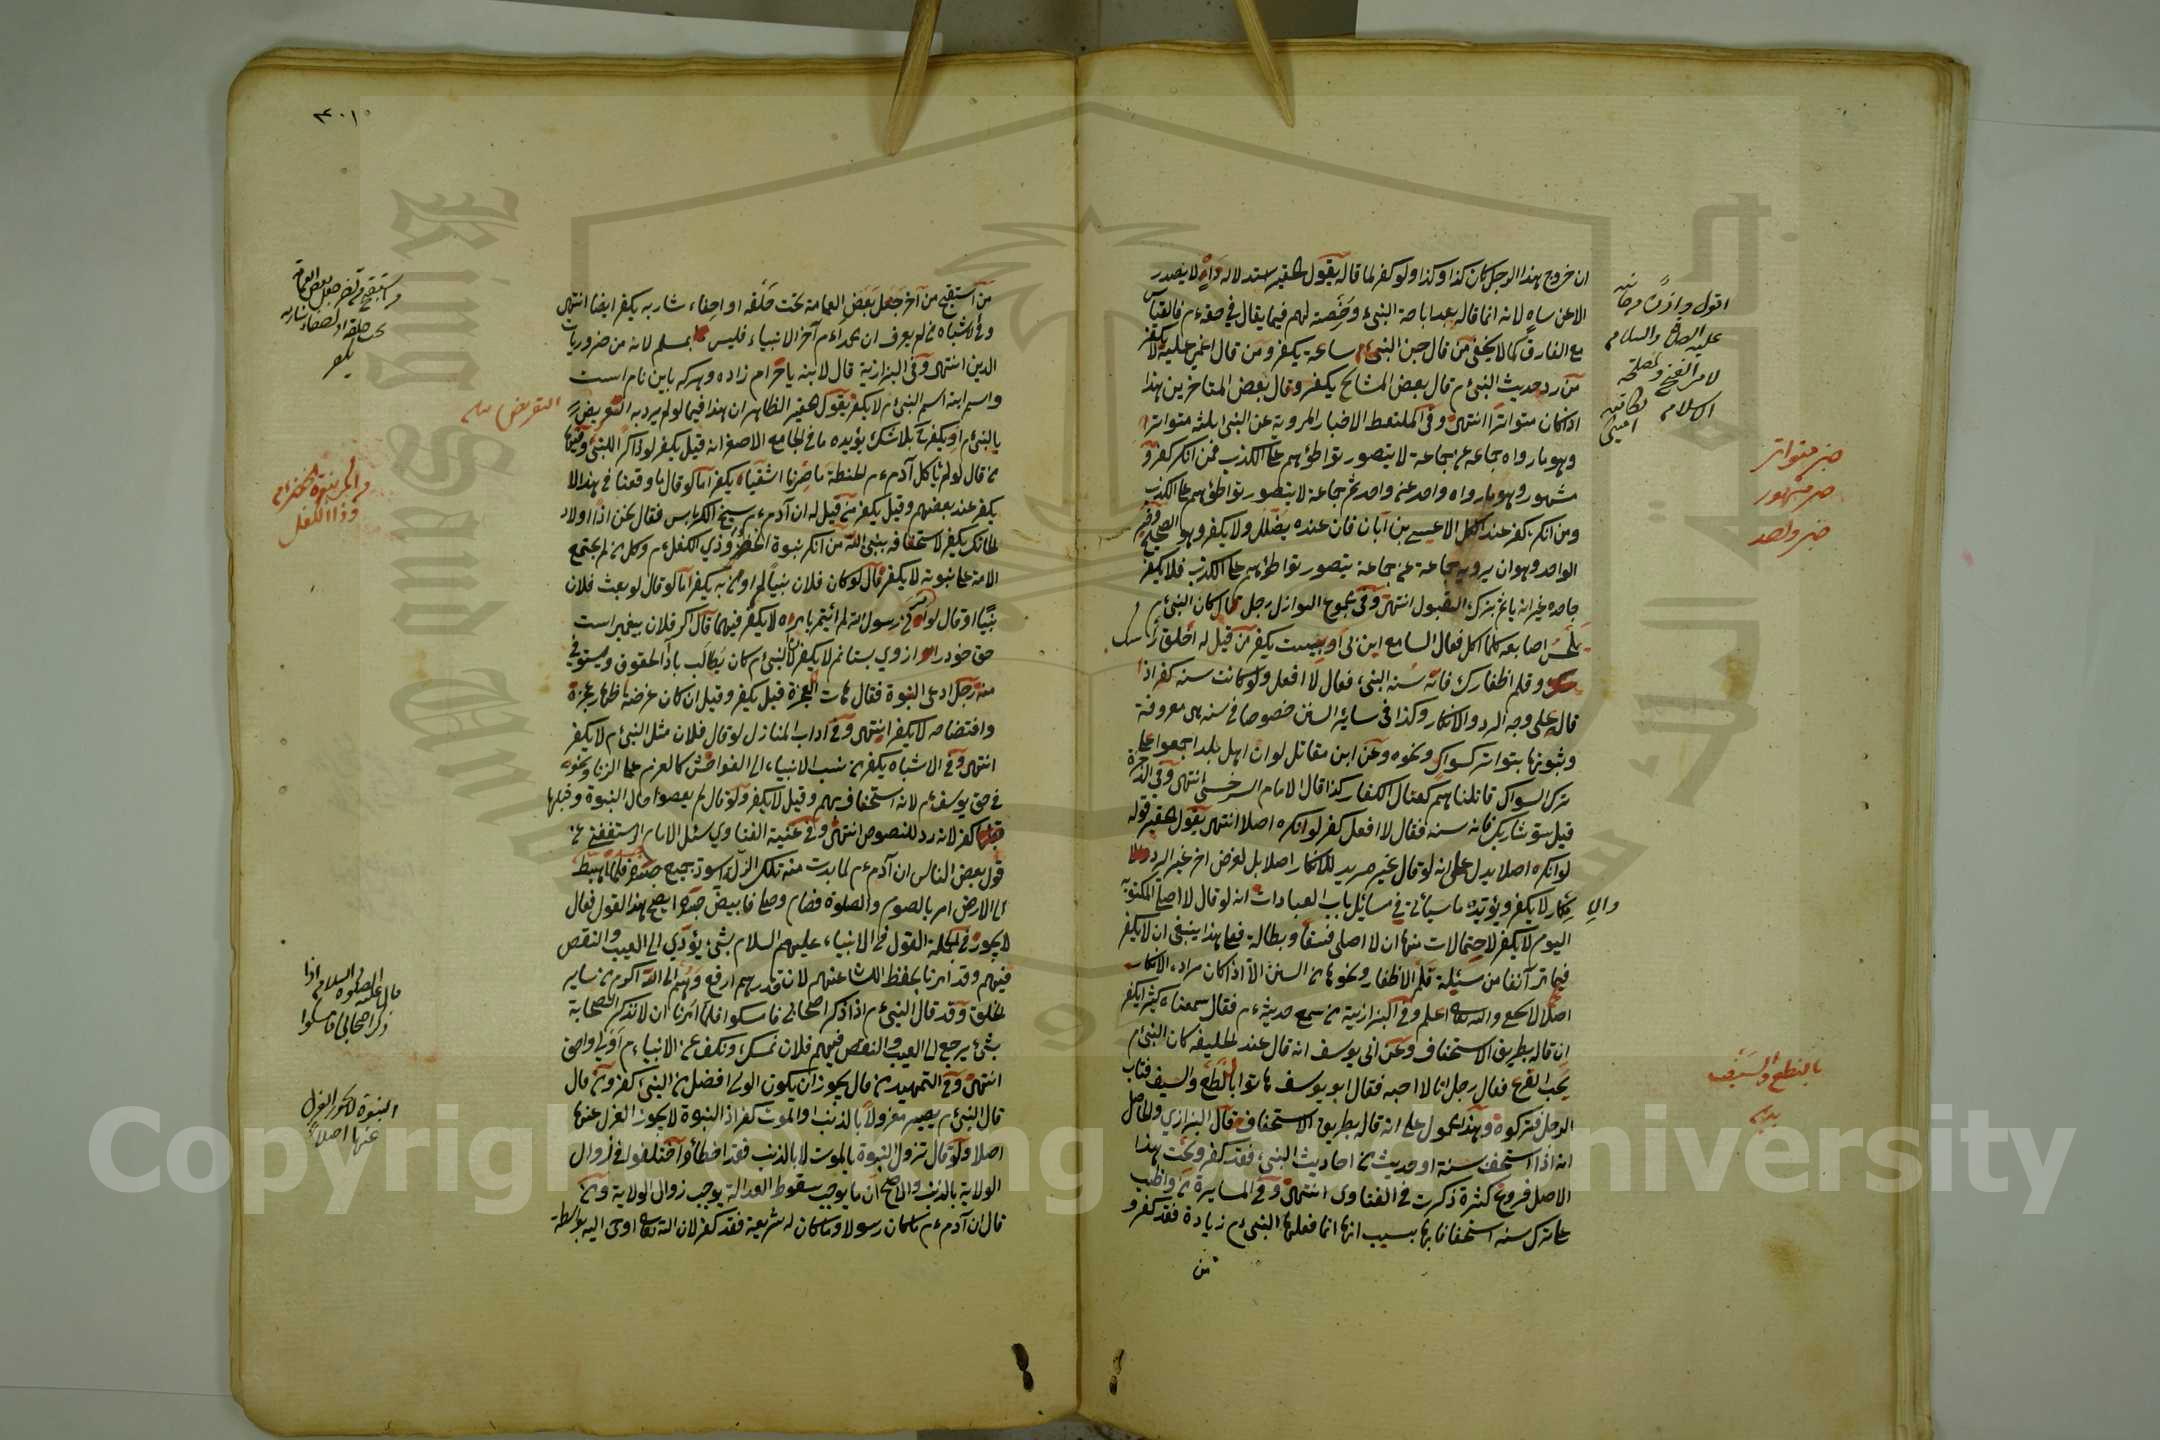 ان خروج هذا الرجل كان كذا وكذا ولو كفر لما قاله يقول الحقير استدلاله واه لا يصدر
الا عن ساه لانه انما قاله بعد اباحة النبي ورخصته لهم فيما يقال في حقه فالقياس
مع الفارق كما لا يخفى من قال جن النبي ساعة يكفر ومن قال اغمي عليه لا يكفر
من رد حديث النبي م قال بعض المشايخ يكفر وقال بعض المتاخرين هذا
اذا كان متواترا انتهى وفي الملتقط الاخبار المروية عن النبي ثلثة متواتر
وهو ما رواه جماعة عن جماعة لا يتصور تواطؤهم على الكذب فمن انكر كفر و
مشهور وهو ما رواه واحد عن واحد ثم جماعة لا يتصور تواطؤهم على الكذب
ومن انكره كفر عند الكل الا عيسى بن ابان فان عنده يضلل ولا يكفر وهو الصحيح وخبر
الواحد وهو ان يرويه جماعة عن جماعة يتصور تواطؤهم على الكذب فلا يكفر
جاحده غير انه ياثم بترك القبول انتهى وفي مجموع النوازل رجل قال كان النبي م
يلحس اصابعه كلما اكل فقال السامع اين بى ادبيست يكفر من قيل له احلق رأسك
وقلم اظفارك فانه سنة النبي فقال لا افعل ولو كانت سنة كفر اذا
قال على وجه الرد والانكار وكذا في سائر السنن خصوصا في سنة هي معروفة
وثبوتها بتواتر كسواك ونحوه وعن ابن مقاتل لو ان اهل بلد اجمعوا على
ترك السواك قاتلناهم كقتال الكفار كذا قال الامام السرخسي انتهى وفي الذخيرة
قيل شاربك فانه سنة فقال لا افعل كفر لو انكره اصلا انتهى يقول الحقير قوله
لو انكره اصلا يدل على انه لو قال غير مريد للانكار اصلا بل لغرض اخر غير الرد
والانكار لا يكفر ويؤيده ما سيأتي في مسائل باب العبادات انه لو قال لا اصلي المكتوبة
اليوم لا يكفر لاحتمالات منها ان لا اصلي فسقا وبطالة فعلى هذا ينبغي ان لا يكفر
فيما مر آنفا من مسئلة قلم الاظفار ونحوها من السنن الا اذا كان مراده الانكار
اصلا والله تعالى اعلم وفي البزازية من سمع حديثه م فقال سمعناه كثيرا يكفر
ان قاله بطريق الاستخفاف وعن ابي يوسف انه قال عند الخليفة كان النبي م
يحب القرع فقال رجل انا لا احبه فقال ابو يوسف هاتوا بالنطع والسيف فتاب
الرجل فتركوه وهذا محمول على انه قاله بطريق الاستخفاف قال البزازي والحاصل
انه اذا استخف سنة او حديث من احاديث النبي فقد كفر وتحت هذا
الاصل فروع كثيرة ذكرت في الفتاوى انتهى وفي المسايرة من واظب
على ترك سنة استخفافا بها بسبب انها انما فعلها النبي م زيادة فقد كفر و
من
عليه الصلوة والسلام
خبر متواتر
خبر مشهور
خبر واحد
بالنطع والسيف
من استقبح من آخر جعل بعض العمامة تحت حلقه او احفاء شاربه يكفر ايضا انتهى
وفي الاشباه من لم يعرف ان محمدا م آخر الانبياء فليس بمسلم لانه من ضروريات
الدين انتهى وفي البزازية قال لابنه يا حرام زاده وهركه باين نام است
واسم ابنه اسم النبي م لا يكفر يقول الحقير الظاهر ان هذا فيما لو لم يرد به التعريض
بالنبي م او يكفر بلا شك يؤيده ما في الجامع الاصغر انه قيل يكفر لو ذاكرا للنبي وقتها
من قال لو لم ياكل آدم م الحنطة ما صرنا اشقياء يكفر اما لو قال ما وقعنا في هذا لا
يكفر عند بعضهم وقيل يكفر من قيل له ان آدم م نسج الكرباس فقال نحن اذا اولاد
الحائك يكفر لاستخفافه بنبي الله من انكر نبوة الخضر وذي الكفل م وكل من لم يجتمع
الامة على نبوته لا يكفر قال لو كان فلان نبيا لم اومن به يكفر اما لو قال لو بعث فلان
نبيا او قال رسول الله لم أئتمر بامره لا يكفر فيهما قال اكر فلان پيغمبر است
حق خود را از وى بستانم لا يكفر لان النبي م كان يطالب باداء الحقوق ويستوفي
منه رجل ادعى النبوة فقال هات المعجزة قيل يكفر وقيل ان كان غرضه اظهار عجزه
وافتضاحه لا يكفر انتهى وفي آداب المنازل لو قال فلان مثل النبي م لا يكفر
انتهى وفي الاشباه يكفر من نسب الانبياء الى الفواحش كالعزم على الزنا ونحوه
في حق يوسف م لانه استخفاف بهم وقيل لا يكفر ولو قال لم يعصوا حال النبوة وقبلها
كفر لانه رد للنصوص انتهى وفي غنية الفتاوى سئل الامام الاستغفني عن
قول بعض الناس ان آدم م لما بدت منه تلك الزلة اسود جميع جسده فلما اهبط
الى الارض امر بالصوم والصلوة فصام وصلى فابيض جسده ايصح هذا القول فقال
لا يجوز في الجملة القول في الانبياء عليهم السلام بشئ يؤدي الى العيب والنقص
فيهم وقد امرنا بحفظ اللسان عنهم لان قدرهم ارفع وهم الى الله اكرم من ساير
الخلق وقد قال النبي م اذا ذكر اصحابي فامسكوا فلما امرنا ان لا نذكر الصحابة
بشئ يرجع الى العيب والنقص فيهم فلان نمسك ونكف عن الانبياء م اولى واحق
انتهى وفي التمهيد من قال يجوز ان يكون الولي افضل من النبي كفر ومن قال
قال النبي م يصير معزولا بالذنب او الموت كفر اذ النبوة لا يجوز العزل عنها
اصلا ولو قال تزول النبوة بالموت لا بالذنب فقد اخطأ واختلفوا في زوال
الولاية بالذنب والاصح ان ما يوجب سقوط العدالة يوجب زوال الولاية ومن
قال ان آدم م ما كان رسولا وما كان له شريعة فقد كفر لان الله تعالى اوحى اليه بواسطة
٣٠١
التعريض
قال عليه الصلوة والسلام اذا
ذكر اصحابي فامسكوا
النبوة لا يجوز العزل
عنها اصلا
Copyright © King Saud University